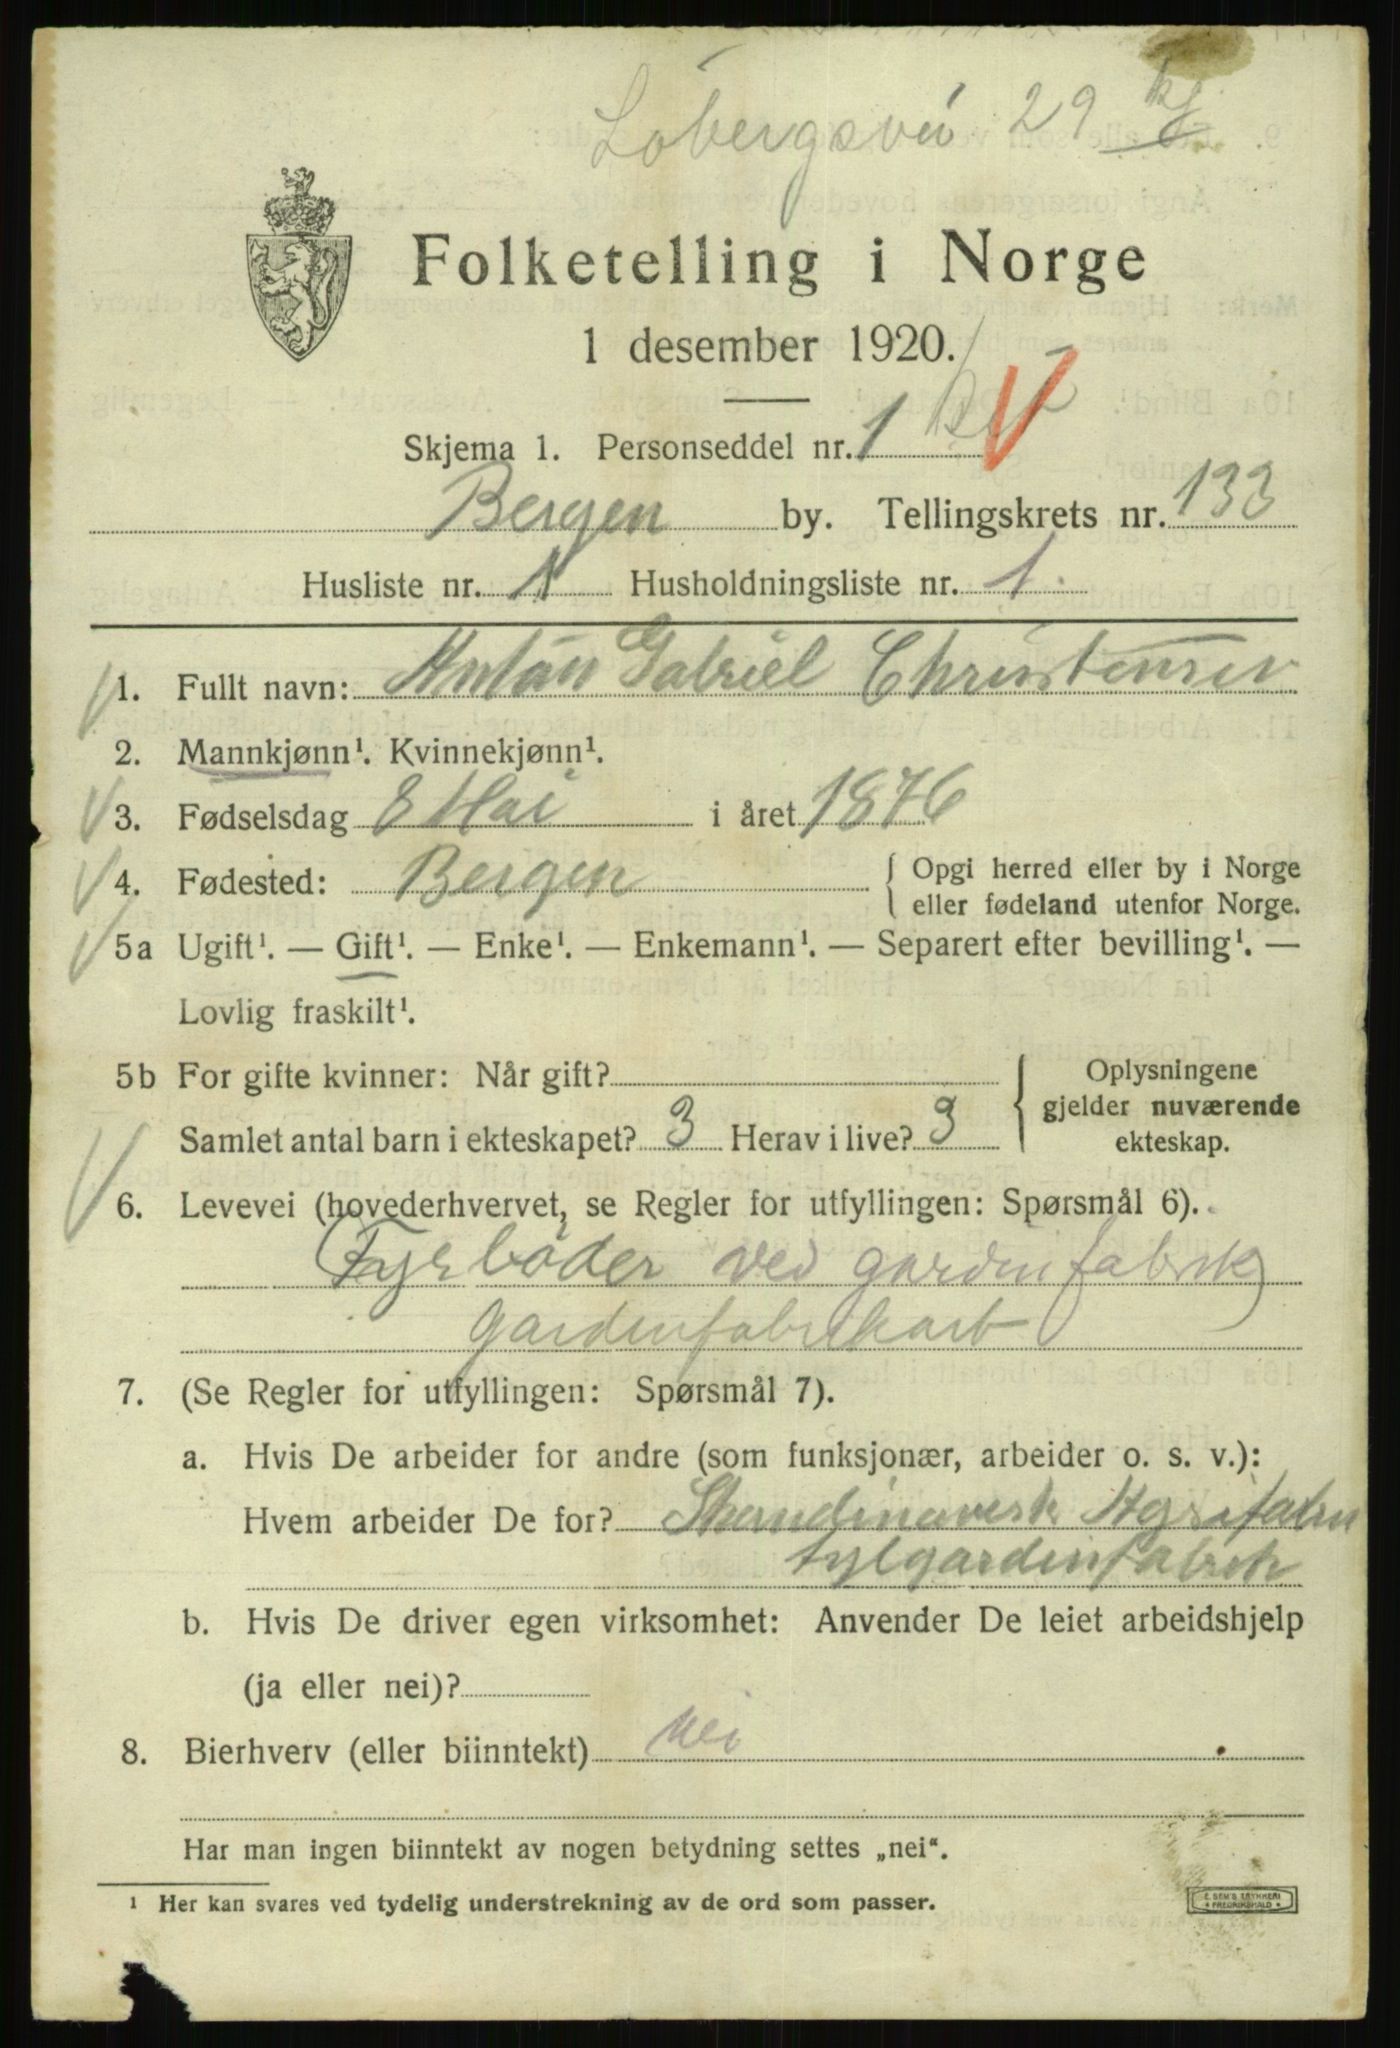 Løbergsvei 29 kj
Folketelling i Norge
1 desember 1920.
Skjema 1. Personseddel nr. 1
Bergen by. Tellingskrets nr. 133
Husliste nr. 1 Husholdningsliste nr. 1.
1. Fullt navn: Anton Gabriel Christensen
2. Mannkjønn¹. Kvinnekjønn¹.
3. Fødselsdag 8 Mai i året 1876
4. Fødested: Bergen { Opgi herred eller by i Norge
eller fødeland utenfor Norge.
5a Ugift¹. — Gift¹. — Enke¹. — Enkemann¹. — Separert efter bevilling¹. —
Lovlig fraskilt¹.
5b For gifte kvinner: Når gift? { Oplysningene
gjelder nuværende
Samlet antal barn i ekteskapet? 3 Herav i live? 3
ekteskap.
6. Levevei (hovederhvervet, se Regler for utfyllingen: Spørsmål 6).
(Fyrbøder ved gardinfabrik)
gardinfabrikarb
7. (Se Regler for utfyllingen: Spørsmål 7).
a. Hvis De arbeider for andre (som funksjonær, arbeider o. s. v.):
Hvem arbeider De for? Skandinavisk
tylgardinfabrik
b. Hvis De driver egen virksomhet: Anvender De leiet arbeidshjelp
(ja eller nei)?
8. Bierhverv (eller biinntekt) nei
Har man ingen biinntekt av nogen betydning settes „nei“.
¹ Her kan svares ved tydelig understrekning av de ord som passer.
E. SEM'S TRYKKERI
FREDRIKSHALD